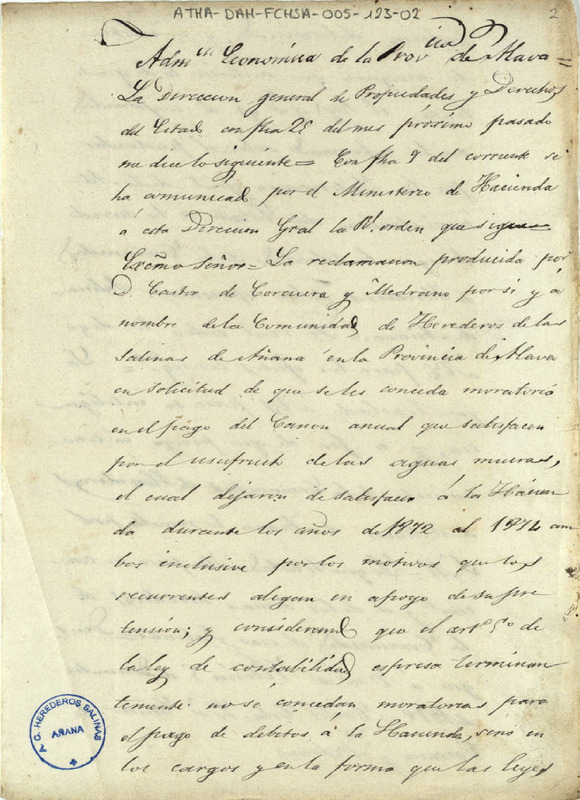 ATHA-DAH-FCHSA-005-123-02
2
Admon Económica de la Provcia de Alava =
La Direccion general de Propiedades y Derechos
del Estado con fha 28 del mes próximo pasado
me dice lo siguiente = Con fha 9 del corriente se
ha comunicado por el Ministerio de Hacienda
á esta Direccion Gral la Rl orden que sigue
Excmo Señor = La reclamacion producida por
D. Castor de Corcuera y Medrano por si y á
nombre de la Comunidad de Herederos de las
Salinas de Añana en la Provincia de Alava
en solicitud de que se les conceda moratoria
en el pago del Canon anual que satisfacen
por el usufructo de las aguas mueras,
el cual dejaron de satisfacer á la Hacien
da durante los años de 1872 al 1874 am
bos inclusive por los motivos que los
recurrentes alegan en apoyo de su pre
tensión; y considerando que el artº 5º de
la ley de contabilidad espresa terminan
temente no se concedan moratorias para
el pago de debitos á la Hacienda, sino en
los cargos y en la forma que las leyes
C. HEREDEROS SALINAS
AÑANA